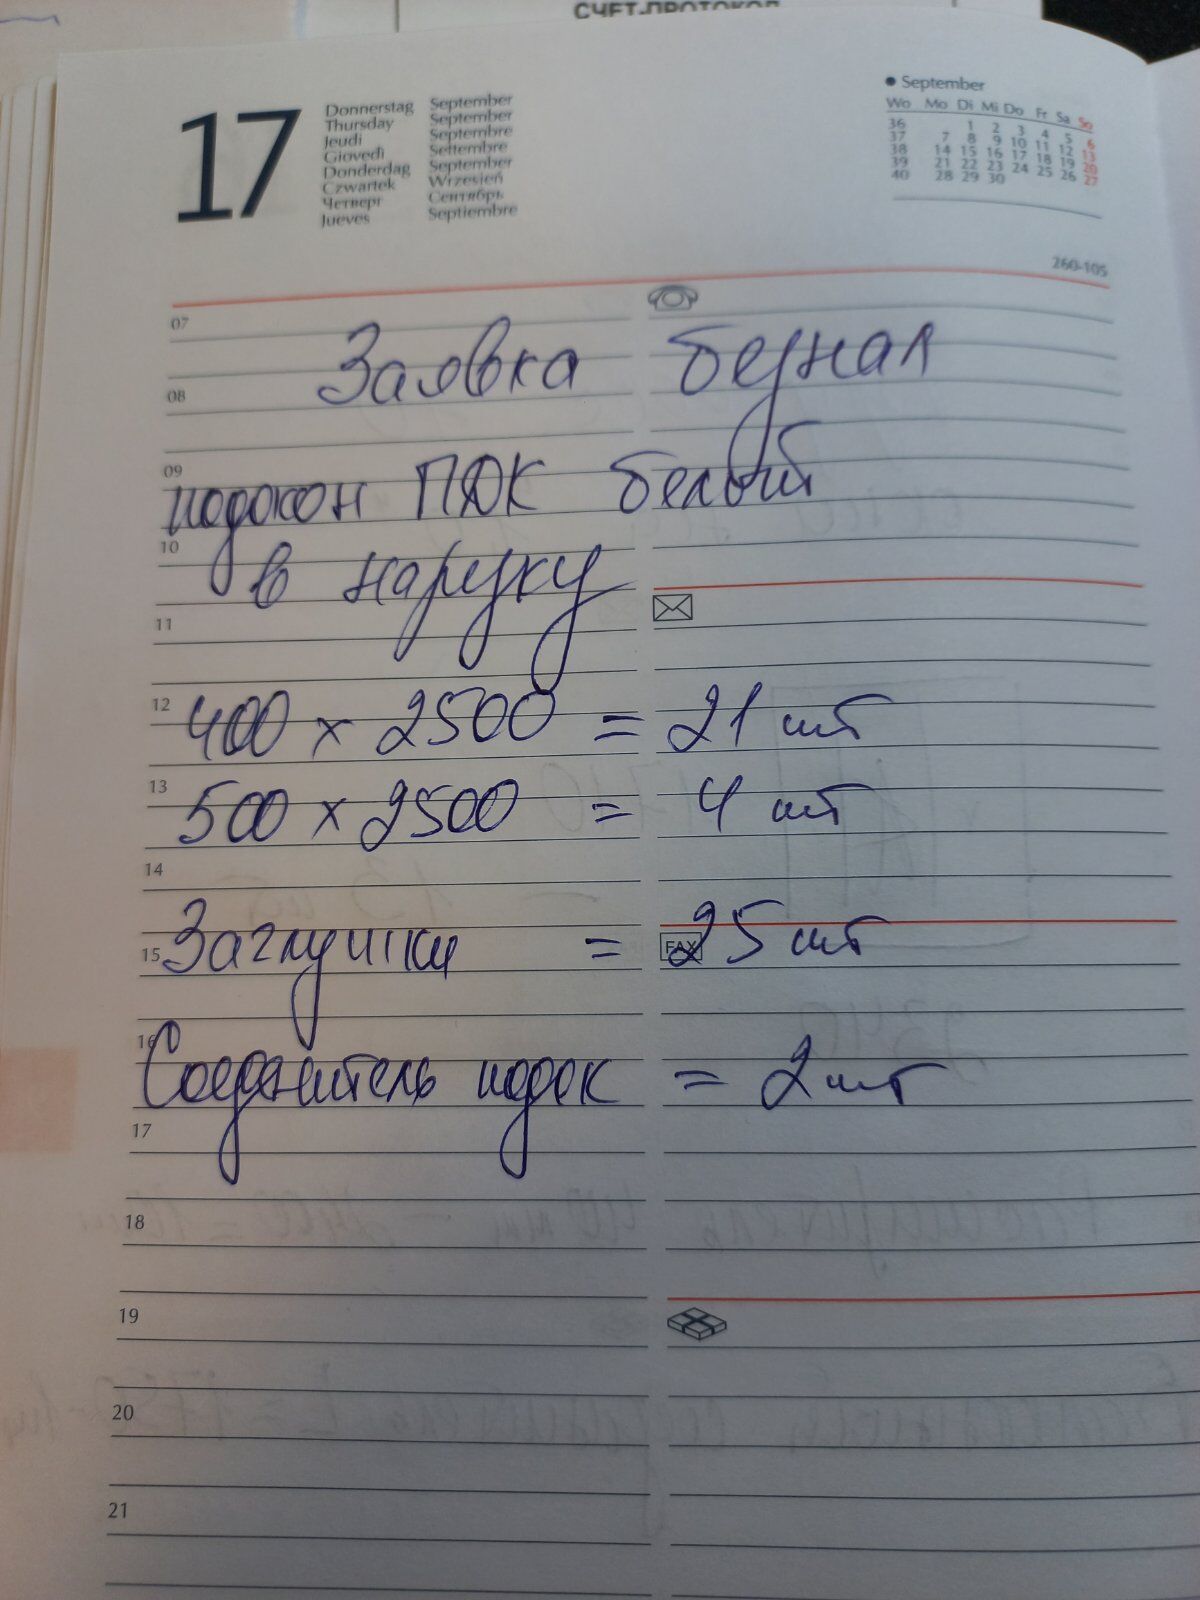 СЧЕТ-ПРОТОКОЛ
17
Donnerstag September
Thursday September
Jeudi Septembre
Giovedì Settembre
Donderdag September
Czwartek Wrzesień
Четверг Сентябрь
Jueves Septiembre
September
Wo Mo Di Mi Do Fr Sa So
36 1 2 3 4 5 6
37 7 8 9 10 11 12 13
38 14 15 16 17 18 19 20
39 21 22 23 24 25 26 27
40 28 29 30
260-105
07
Заявка безнал
08
09
подокон ПДК белый
10
в наружу
11
12
400 x 2500 = 21 шт
13
500 x 2500 = 4 шт
14
15 Заглушки = 25 шт
FAX
16
Соединитель подок = 2 шт
17
18
19
20
21